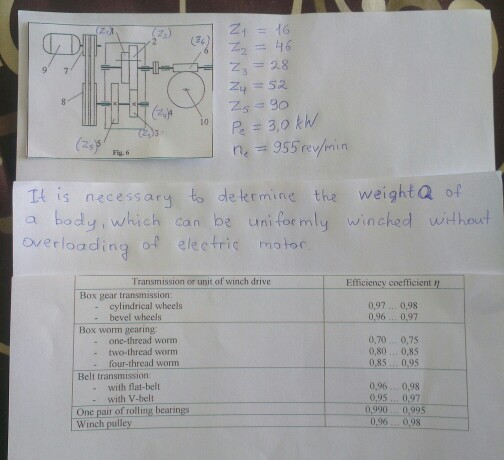 (Z1)1
(Z2)
2
(Z6)
6
9
7
8
(Z4)4
(Z5)5
(Z3)3
10
Fig. 6
Z1 = 16
Z2 = 46
Z3 = 28
Z4 = 52
Z5 = 90
Pe = 3,0 kW
ne = 955 rev/min
It is necessary to determine the weight Q of
a body, which can be uniformly winched without
overloading of electric motor.
Transmission or unit of winch drive Efficiency coefficient η
Box gear transmission:
- cylindrical wheels 0,97 ... 0,98
- bevel wheels 0,96 ... 0,97
Box worm gearing:
- one-thread worm 0,70 ... 0,75
- two-thread worm 0,80 ... 0,85
- four-thread worm 0,85 ... 0,95
Belt transmission:
- with flat-belt 0,96 ... 0,98
- with V-belt 0,95 ... 0,97
One pair of rolling bearings 0,990 ... 0,995
Winch pulley 0,96 ... 0,98